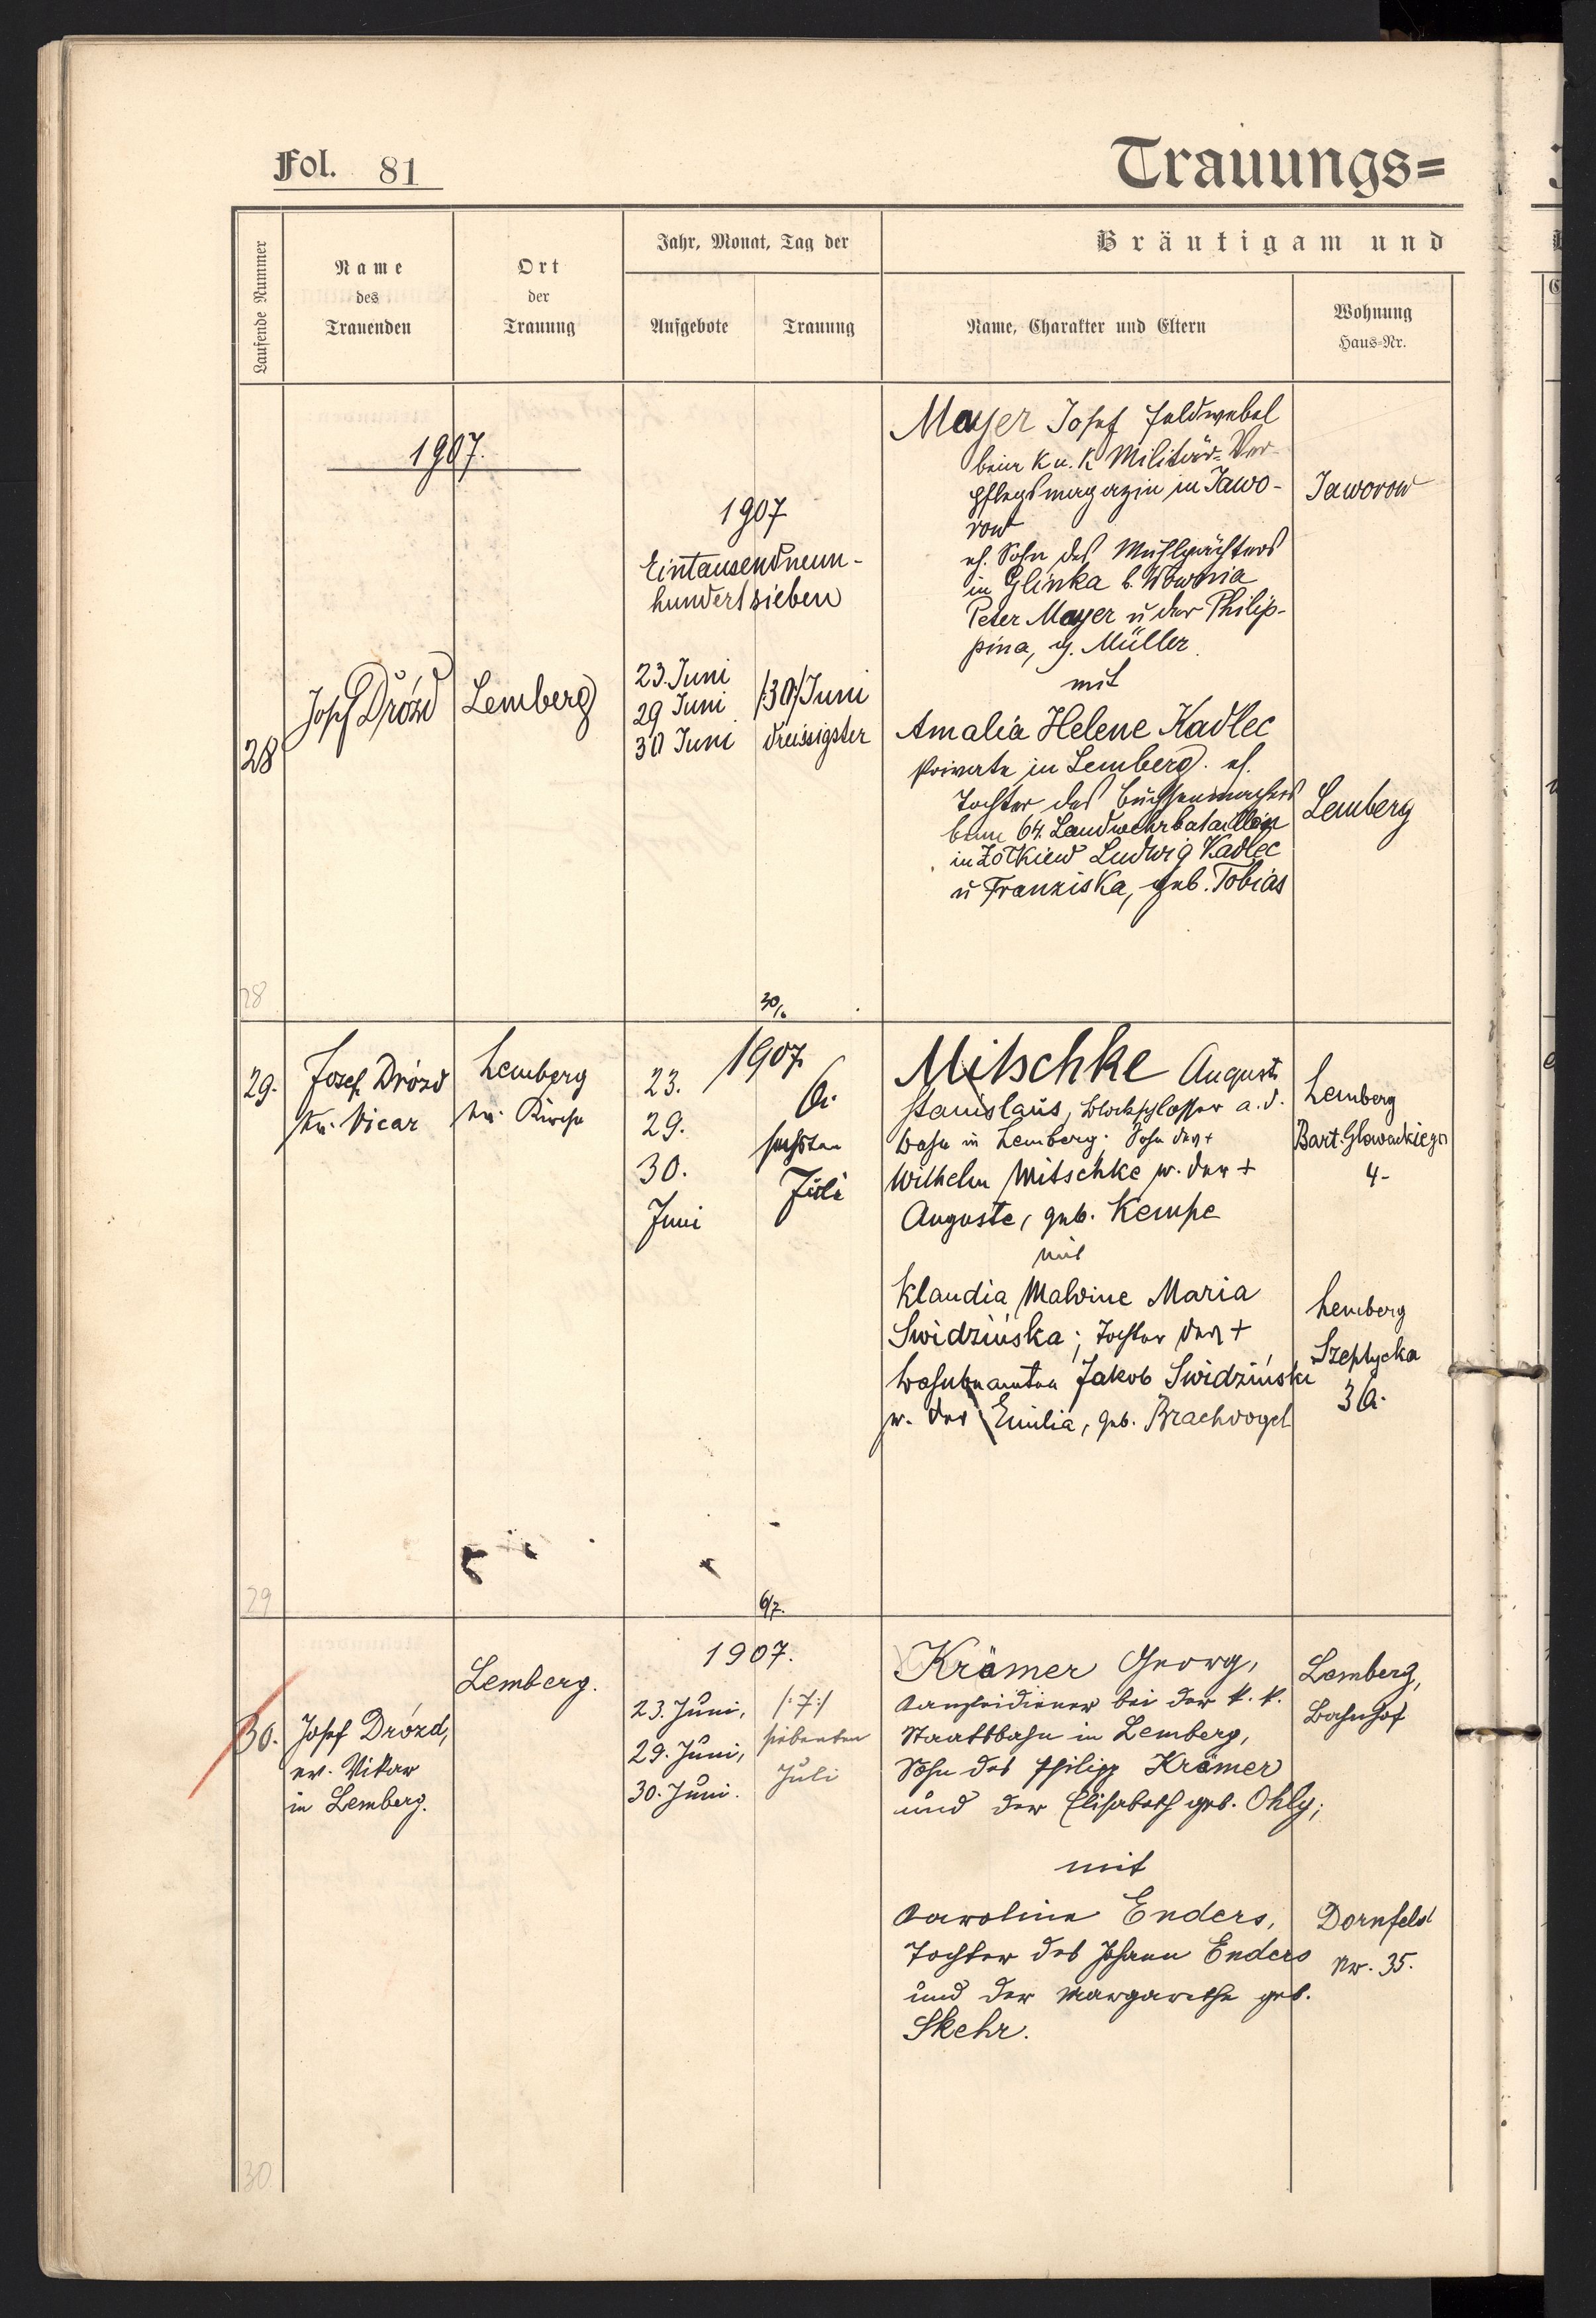 Fol. 81
Trauungs=
Laufende Nummer
Name
des
Trauenden
Ort
der
Trauung
Jahr, Monat, Tag der
Aufgebote
Trauung
Bräutigam und
Name, Charakter und Eltern
Wohnung
Haus-Nr.
1907.
28
Josef Drózd
Lemberg
1907
Eintausendneun-
hundertsieben
23. Juni
29 Juni
30 Juni
/30/ Juni
dreissigster
Mayer Josef Feldwebel
beim k u. k Militär-Ver-
pflegsmagazin in Jawo-
row
eh. Sohn des Mühlpächters
in Glinka b.
Peter Mayer u der Philip-
pina, g. Müller
mit
Amalia Helene Kadlec
Private in Lemberg. eh.
Tochter des Büchsenmachers
beim 64. Landwehrbataillon
in Żółkiew Ludwig Kadlec
u Franziska, geb. Tobias
Jaworow
Lemberg
28
30/6
29.
Josef Drózd
ev. Vicar
Lemberg
ev. Kirche
1907
23.
29.
30.
Juni
6.
sechsten
Juli
Mitschke August
Stanislaus, Blockschlosser a. d.
Bahn in Lemberg; Sohn des +
Wilhelm Mitschke u. der +
Auguste, geb. Kempe
mit
Klaudia Malvine Maria
Swidzińska; Tochter des +
Bahnbeamten Jakob Swidziński
u. der Emilia, geb. Brachvogel
Lemberg
Bart. Glowackiego
4-
Lemberg
Szeptycka
36.
29
6/7.
30.
Josef Drózd,
ev. Vikar
in Lemberg.
Lemberg.
1907.
23. Juni,
29. Juni,
30. Juni.
/:7:/
siebenten
Juli
Krämer Georg,
Kanzleidiener bei der k. k.
Staatsbahn in Lemberg,
Sohn des Philipp Krämer
und der Elisabeth geb. Ohly;
mit
Karoline Enders,
Tochter des Johann Enders
und der Margarethe geb.
Skehr.
Lemberg,
Bahnhof
Dornfeld
Nr. 35.
30